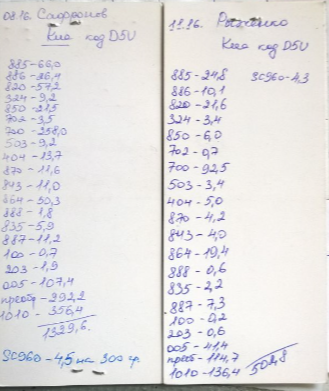 08.16. Сафронов
Киа код D5U
885-66,0
886-26,4
820-57,2
324-9,2
850-21,5
702-3,5
700-258,0
503-9,2
404-13,7
870-11,6
843-11,0
864-50,3
888-1,8
835-5,9
887-11,2
100-0,7
203-1,9
005-107,4
преобр-292,2
1010-356,4
1329,6.
SC960-4,5 на 300 гр
Киа код D5U
885-24,8 SC960-4,3
886-10,1
820-21,6
324-3,4
850-6,0
702-0,7
700-92,5
503-3,4
404-5,0
870-4,2
843-4,0
864-19,4
888-0,6
835-2,2
887-7,3
100-0,2
203-0,6
005-41,4
преоб-114,7
1010-136,4
501,8